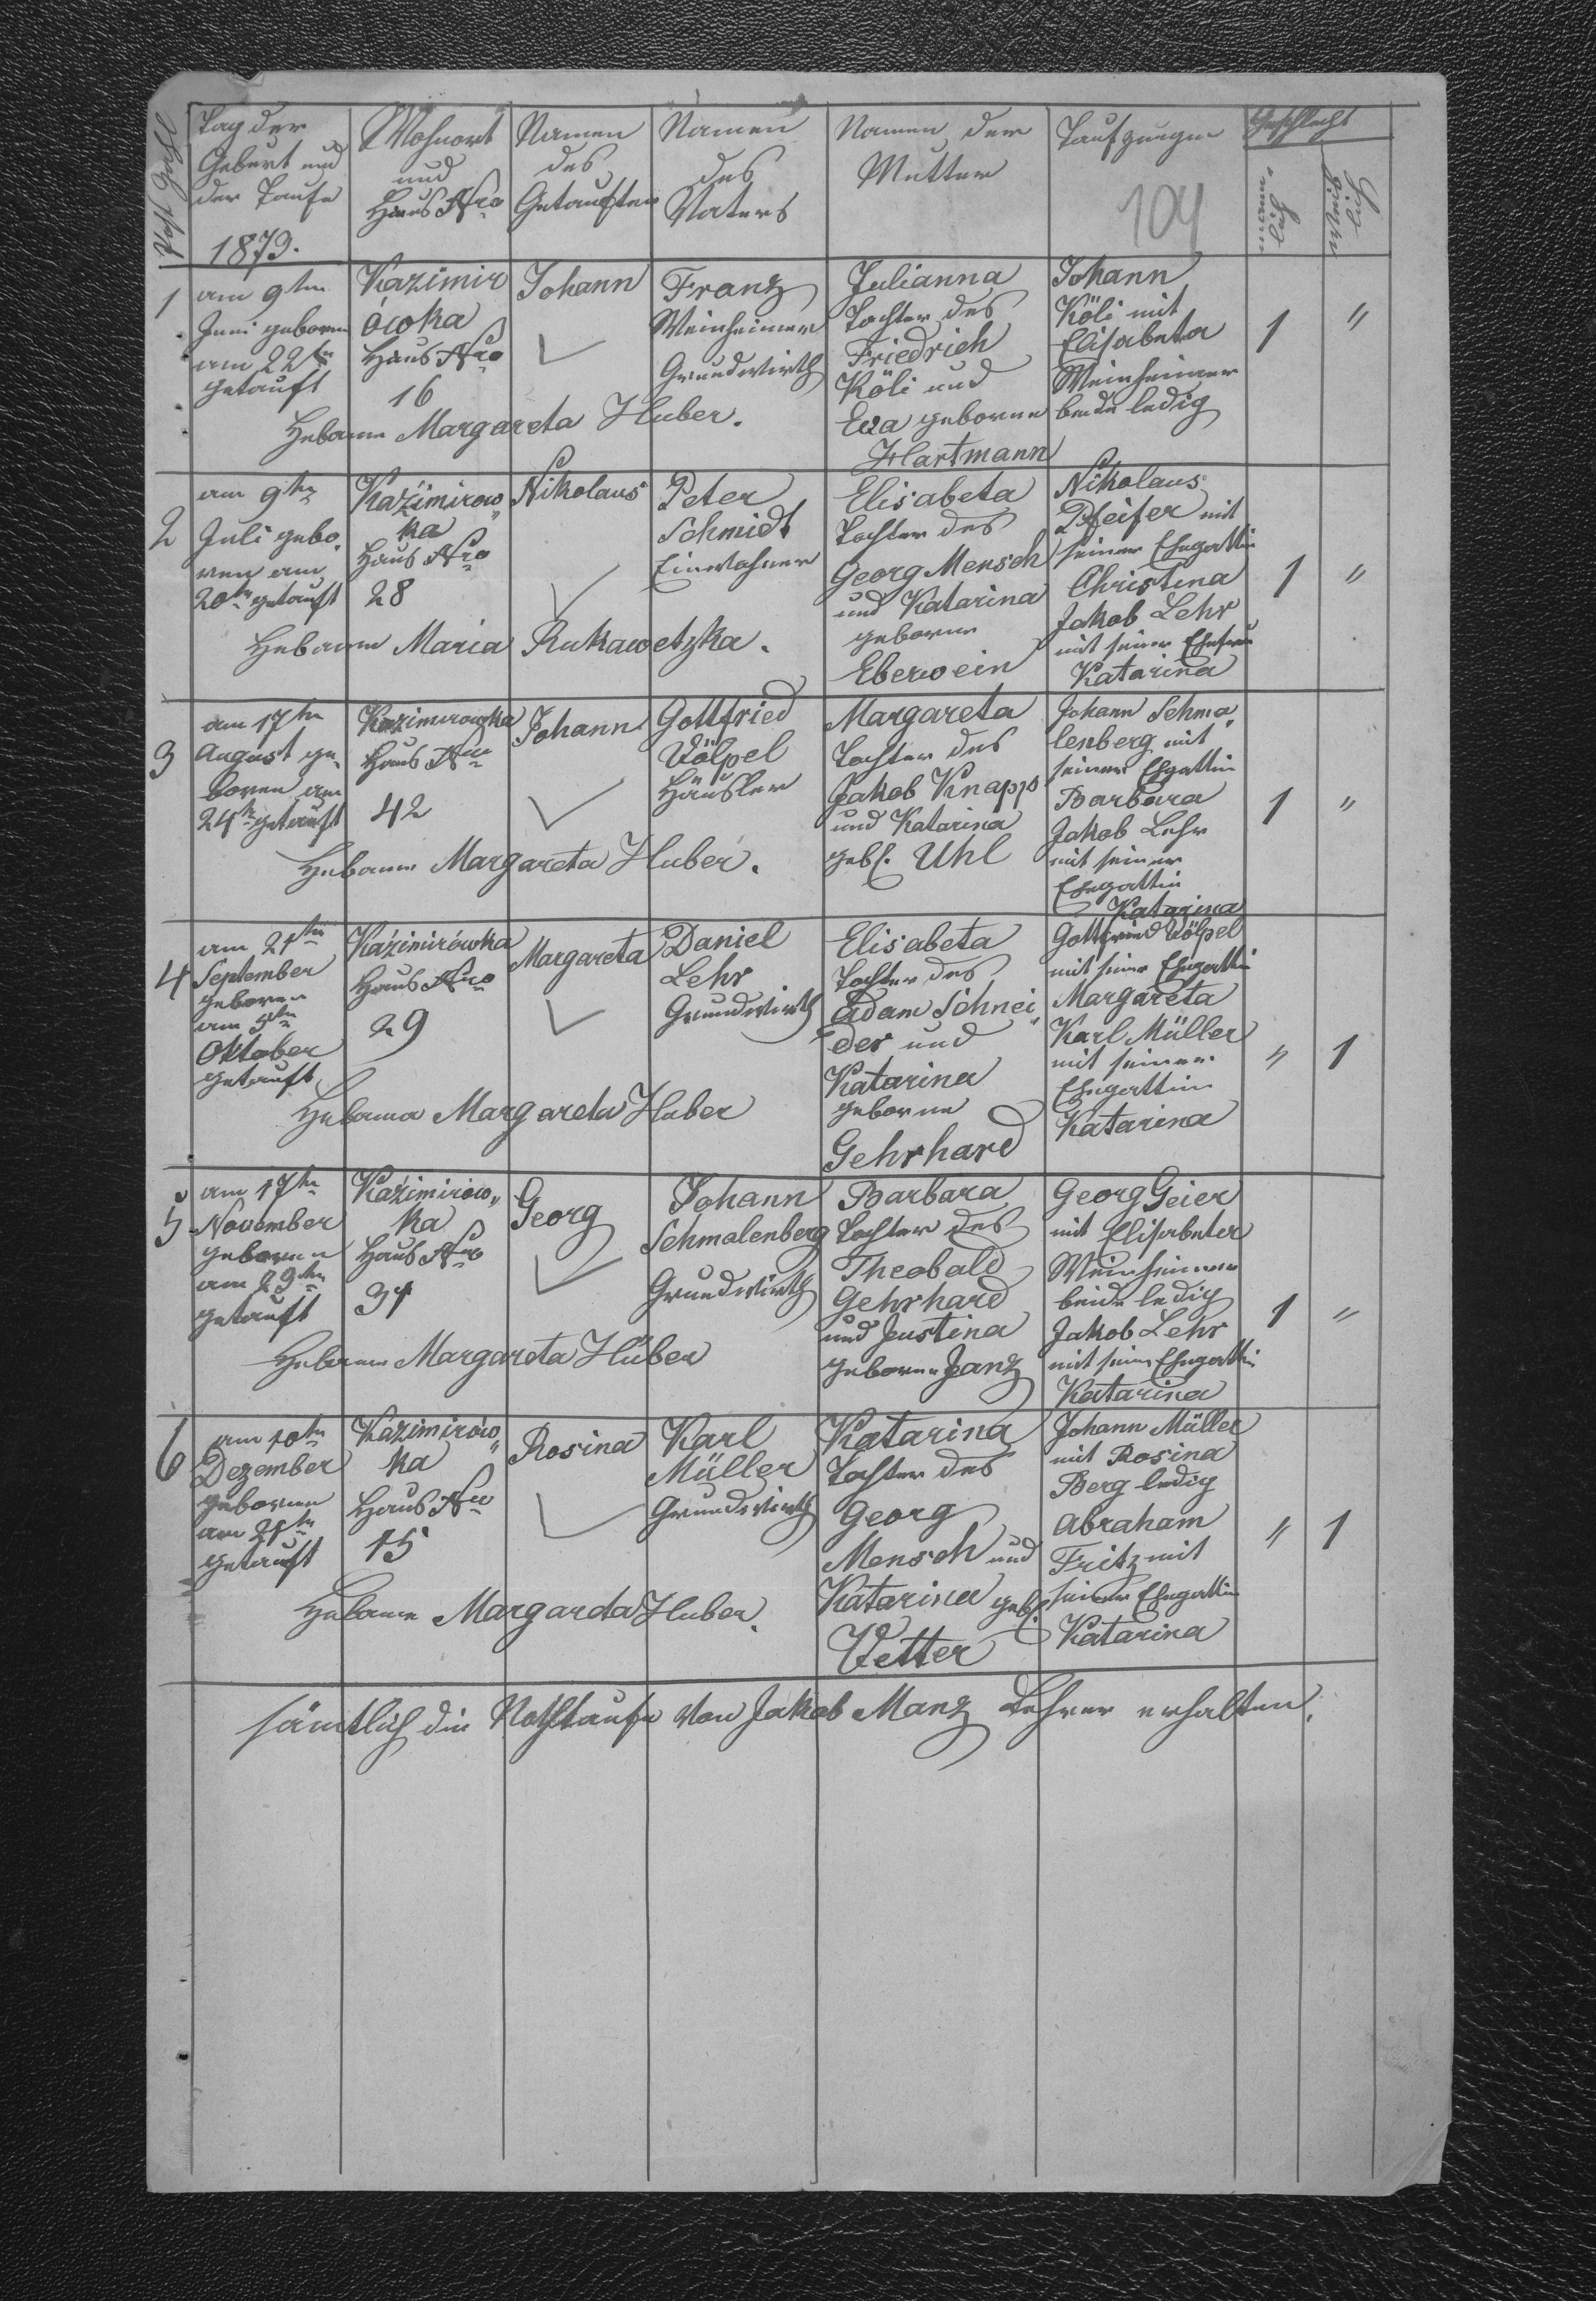 Post Zahl
Tag der
Geburt und
der Taufe
1873.
Wohnort
und
Haus Nro
Namen
des
Getauften
Namen
des
Vaters
Namen der
Mutter
Taufzeugen
104
Geschlecht
1
am 9ten
Juni geboren
am 22ten
getauft
Kazimir
ówka
Haus Nro
16
Johann
Franz
Weinheimer
Grundwirth
Julianna
Tochter des
Friedrich
Köli und
Eva geborene
Hartmann
Johann
Köli mit
Elisabeta
Weinheimer
beide ledig
1
"
Hebame Margareta Huber.
2
am 9ten
Juli gebo,
ren am
20ten getauft
Kazimirow,,
ka
Haus Nro
28
Nikolaus
Peter
Schmidt
Einwohner
Elisabeta
Tochter des
Georg Mensch
und Katarina
geborne
Eberwein
Nikolaus
Pfeifer mit
seiner Ehegattin
Christina
Jakob Lehr
mit seiner Ehefrau
Katarina
1
"
Hebamm Maria Rukawetzka.
3
am 17ten
August ge,,
boren am
24ten getauft
Kazimirowka
Haus Nro
42
Johann
Gottfried
Völpel
Häusler
Margareta
Tochter des
Jakob Knapp
und Katarina
geb. Uhl
Johann Schma,,
lenberg mit
seiner Ehgattin
Barbara
Jakob Lehr
mit seiner
Ehegattin
Katarina
1
"
Hebamm Margareta Huber.
4
am 21ten
September
geboren
am 5ten
Oktober
getauft
Kazimirówka
Haus Nro
29
Margareta
Daniel
Lehr
Grundwirth
Elisabeta
Tochter des
Adam Schnei,,
der und
Katarina
geborne
Gehrhard
Gottfried Völpel
mit seiner Ehegattin
Margareta
Karl Müller
mit seiner
Ehegattin
Katarina
"
1
Hebama Margareta Huber
5
am 17ten
November
geboren
am 23ten
getauft
Kazimirów,,
ka
Haus Nro
31
Georg
Johann
Schmalenberg
Grundwirth
Barbara
Tochter des
Theobald
Gehrhard
und Justina
geborne Janz
Georg Geier
mit Elisabeta
Weinheimer
beide ledig
Jakob Lehr
mit seiner Ehegattin
Katarina
1
"
Hebamm Margareta Huber
6
am 10ten
Dezember
geboren
am 21ten
getauft
Kazimirow,,
ka
Haus Nro
15
Rosina
Karl
Müller
Grundwirth
Katarina
Tochter des
Georg
Mensch und
Katarina geb.
Vetter
Johann Müller
mit Rosina
Berg ledig
Abraham
Fritz mit
seiner Ehegattin
Katarina
"
1
Hebame Margareta Huber.
sämtlich die Nothtaufe von Jakob Manz Lehrer erhalten.